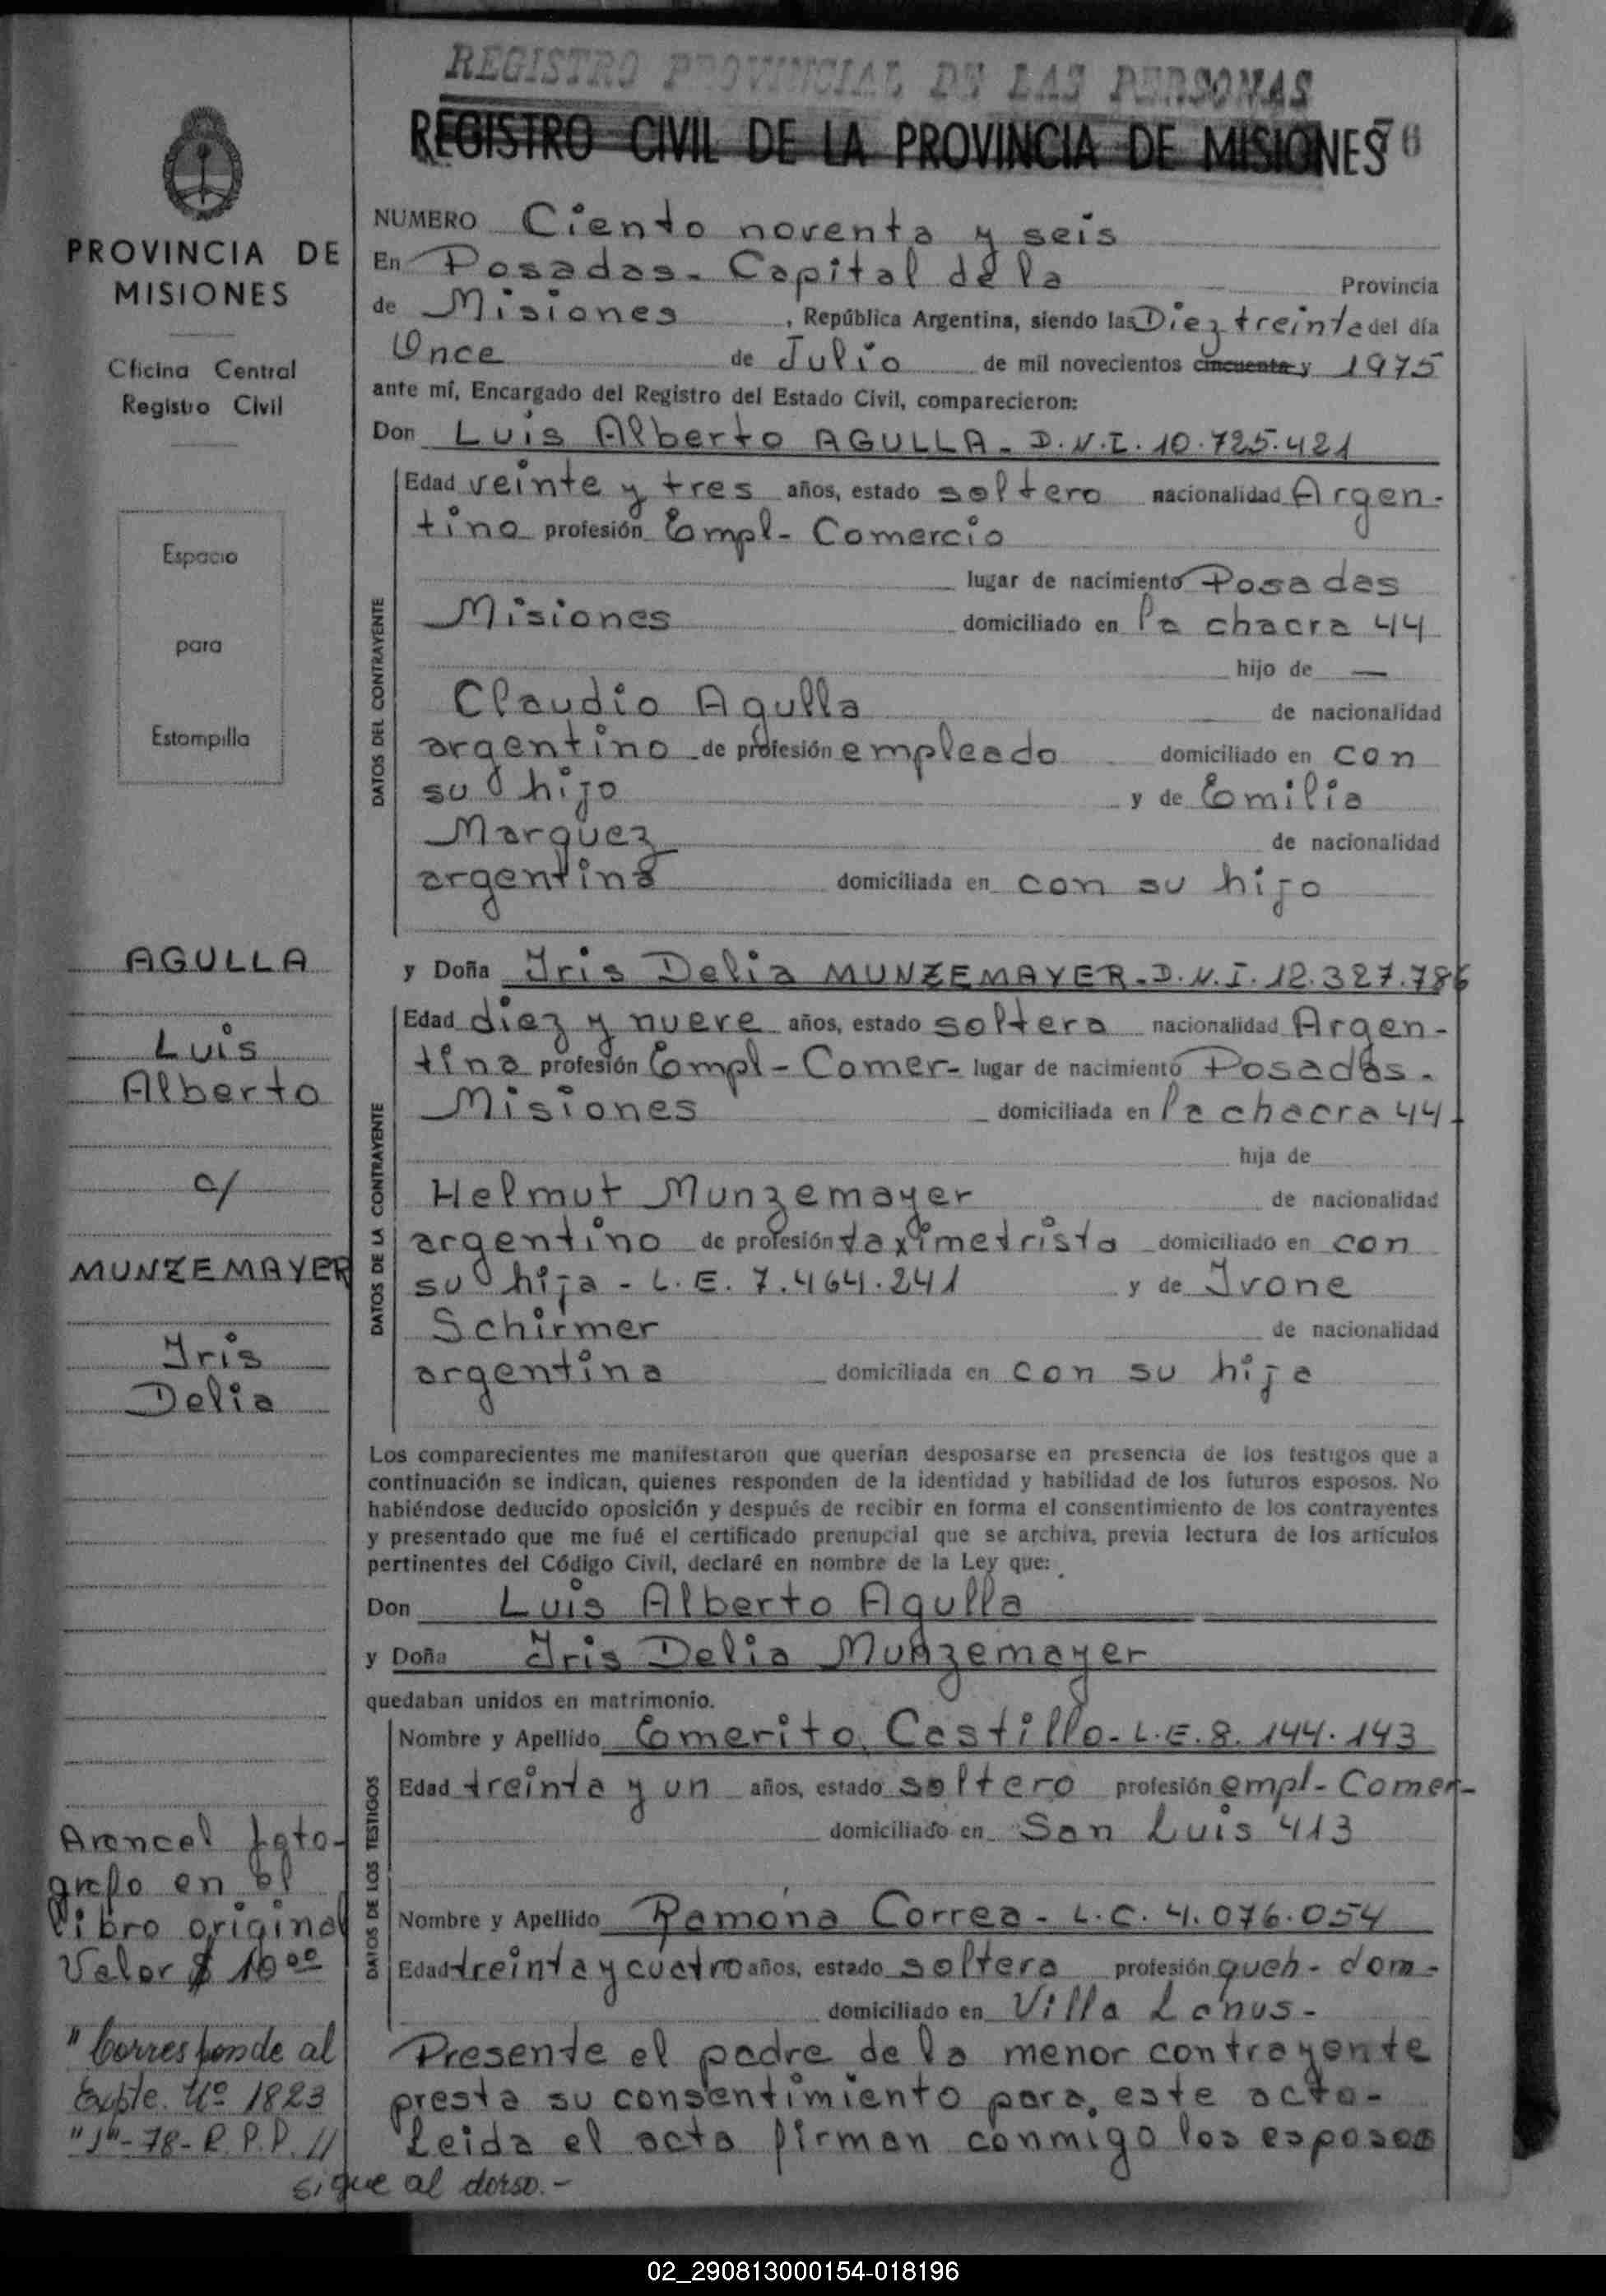 REGISTRO PROVINCIAL DE LAS PERSONAS
REGISTRO CIVIL DE LA PROVINCIA DE MISIONES
PROVINCIA DE
MISIONES
Oficina Central
Registro Civil
Espacio
para
Estampilla
AGULLA
Luis
Alberto
c/
MUNZEMAYER
Iris
Delia
Arancel foto-
grafo en el
libro original
Valor $ 10 00
"Corresponde al
Expte. Nº 1823
"J"-78-R.P.P. //
sigue al dorso.-
NUMERO Ciento noventa y seis
En Posadas - Capital de la Provincia
de Misiones, República Argentina, siendo las Diez treinta del día
Once de Julio de mil novecientos cincuenta y 1975
ante mí, Encargado del Registro del Estado Civil, comparecieron:
Don Luis Alberto AGULLA - D.N.I. 10.725.421
DATOS DEL CONTRAYENTE
Edad veinte y tres años, estado soltero nacionalidad Argen-
tino profesión Empl- Comercio
lugar de nacimiento Posadas
Misiones domiciliado en la chacra 44
hijo de —
Claudio Agulla de nacionalidad
argentino de profesión empleado domiciliado en con
su hijo y de Emilia
Marquez de nacionalidad
argentina domiciliada en con su hijo
y Doña Iris Delia MUNZEMAYER - D.N.I. 12.327.786
DATOS DE LA CONTRAYENTE
Edad diez y nueve años, estado soltera nacionalidad Argen-
tina profesión Empl- Comer- lugar de nacimiento Posadas -
Misiones domiciliada en la chacra 44
hija de
Helmut Munzemayer de nacionalidad
argentino de profesión taximetrista domiciliado en con
su hija - L.E. 7.464.241 y de Ivone
Schirmer de nacionalidad
argentina domiciliada en con su hija
Los comparecientes me manifestaron que querían desposarse en presencia de los testigos que a
continuación se indican, quienes responden de la identidad y habilidad de los futuros esposos. No
habiéndose deducido oposición y después de recibir en forma el consentimiento de los contrayentes
y presentado que me fué el certificado prenupcial que se archiva, previa lectura de los artículos
pertinentes del Código Civil, declaré en nombre de la Ley que:
Don Luis Alberto Agulla
y Doña Iris Delia Munzemayer
quedaban unidos en matrimonio.
DATOS DE LOS TESTIGOS
Nombre y Apellido Emerito Castillo - L.E. 8.144.143
Edad treinta y un años, estado soltero profesión empl- Comer-
domiciliado en San Luis 413
Nombre y Apellido Ramona Correa - L.C. 4.076.054
Edad treinta y cuatro años, estado soltera profesión queh - dom -
domiciliado en Villa Lanus -
Presente el padre de la menor contrayente
presta su consentimiento para este acto -
Leida el acta firman conmigo los esposos
02_290813000154-018196